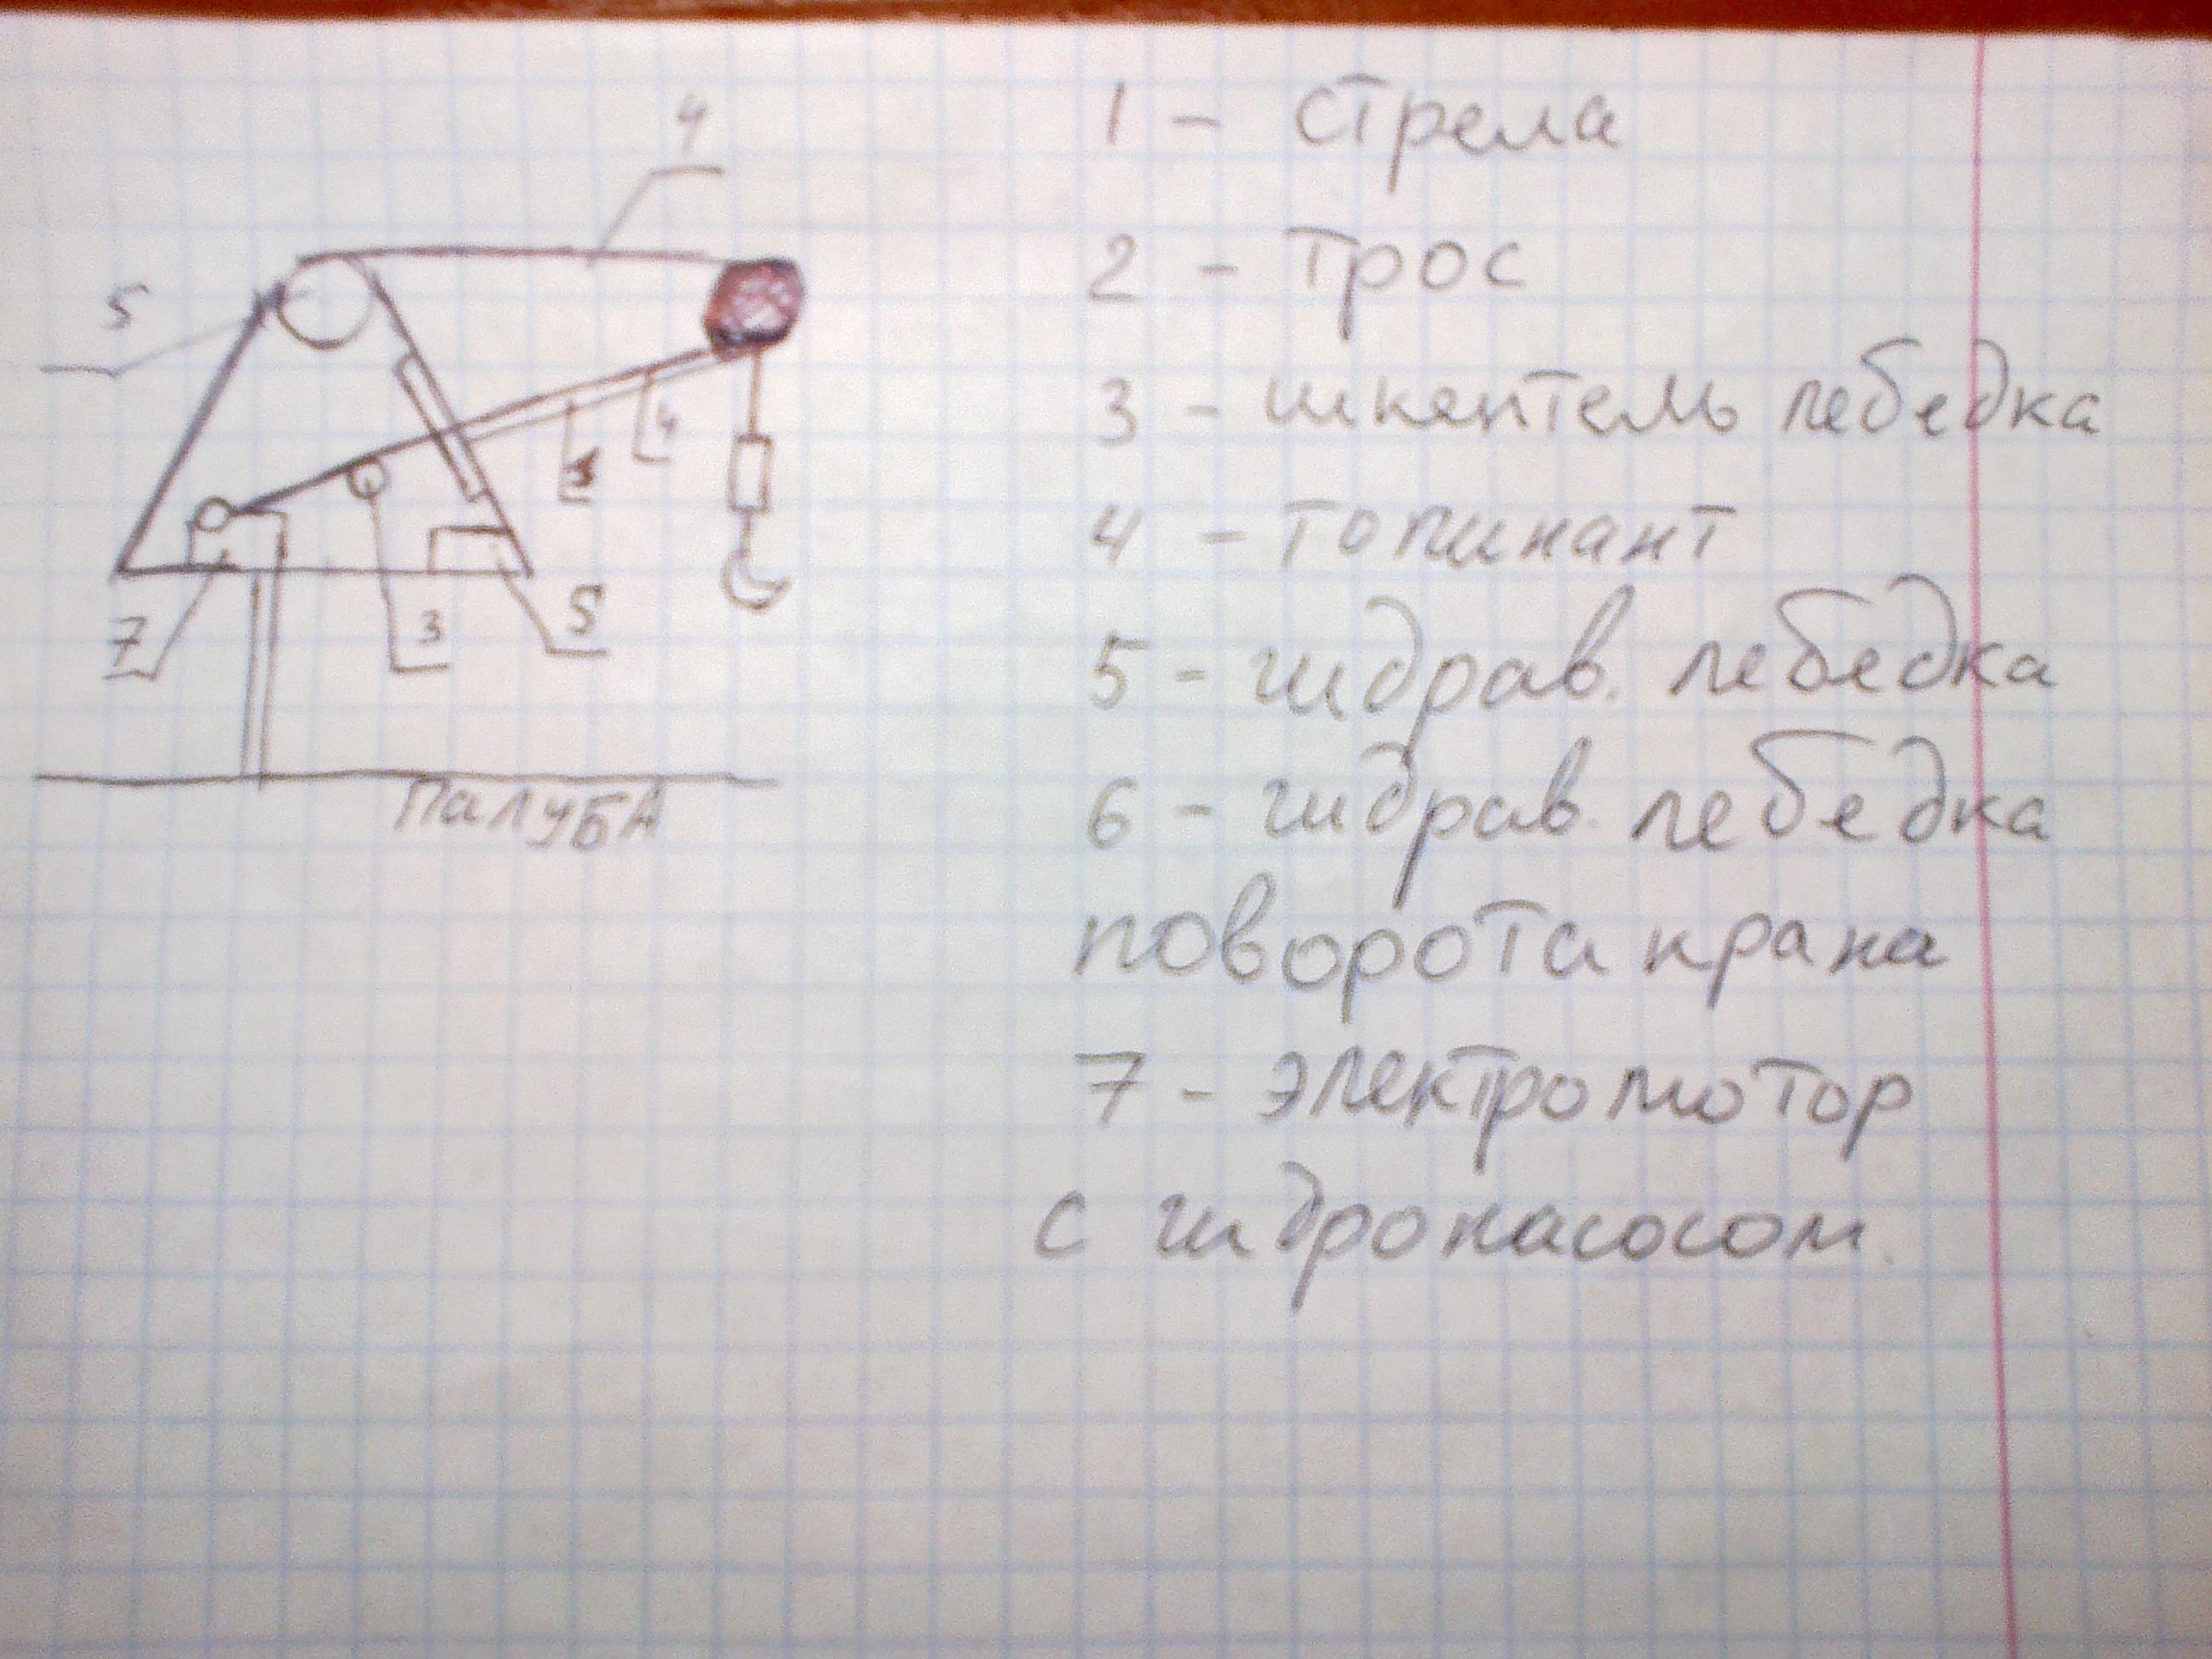 4
5
1
4
7
3
5
ПАЛУБА
1 - стрела
2 - трос
3 - шкентель лебедка
4 - топинант
5 - гидрав. лебедка
6 - гидрав. лебедка
поворота крана
7 - электромотор
с гидронасосом.